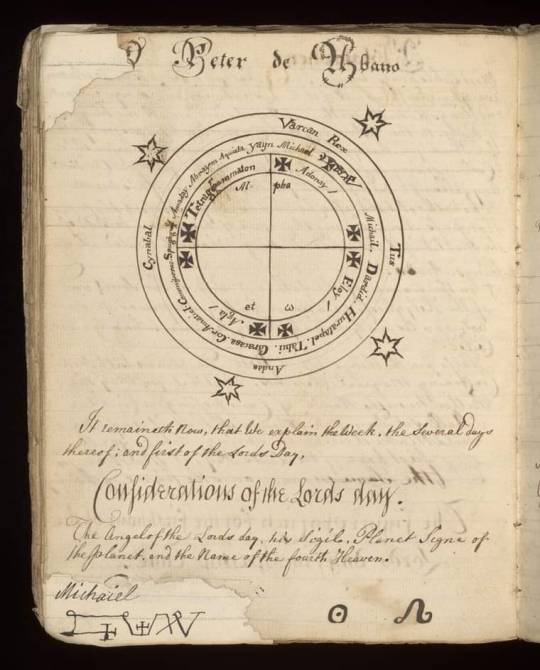 Peter de Abano
Varcan Rex
Tus
Andas
Cynabal
yayn Michael
Michail. Dardiel. Huratapel. Tatui. Caracasa. Coro Amatiel Commissoros
Amadiy Abraym
Tetragrammaton
Adonay /
Eloy /
Agla /
Al- pha
et ω
It remaineth now, that We explain the Week, the several days
thereof; and first of the Lords Day,
Considerations of the Lords day.
The Angel of the Lords day, his Sigile, Planet Signe of
the planet, and the Name of the fourth Heaven.
Michaiel
☉ ♌